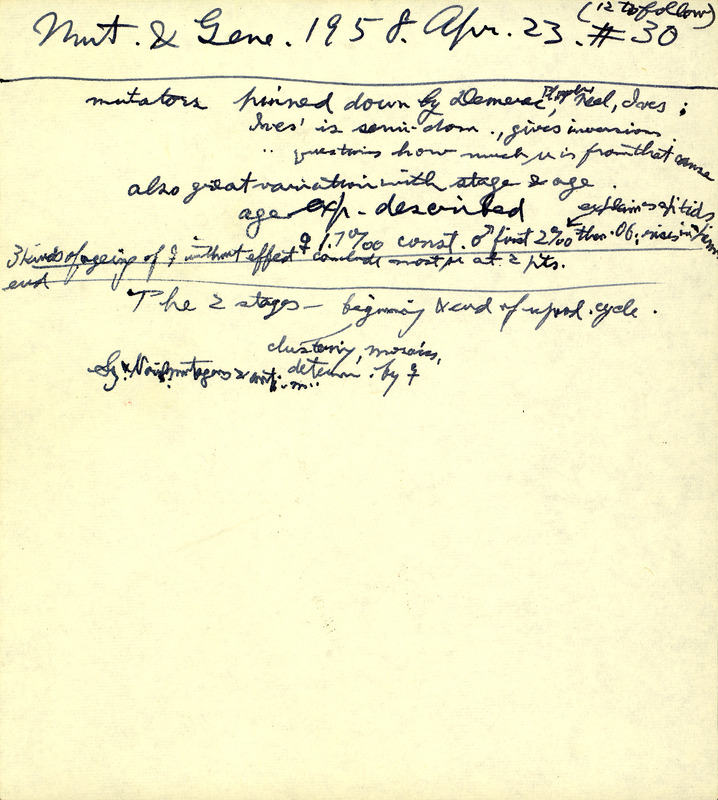 (12 to follow)
Mut. & Gene. 1958. Apr. 23. #30
mutators pinned down by Demerec, Plough, Neel, Ives;
Ives' is semi-dom., gives inversions.
" questions how much μ is from that cause
also great variation with stage & age.
age exp. described
explains spitids
♀ 1.7‰ const. ♂ first 2‰ then .06; rises in
3 kinds of ageing of ♀ without effect conclude most μ at 2 pts.
end
The 2 stages — beginning & end of reprod. cycle.
clustering, mosaics,
mutagens & anti-m.. determ. by ♀